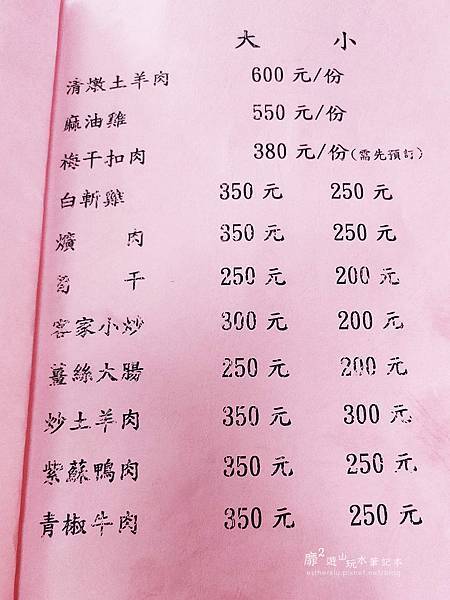 大 小
清燉土羊肉 600 元/份
麻油雞 550 元/份
梅干扣肉 380 元/份(需先預訂)
白斬雞 350 元 250 元
爌 肉 350 元 250 元
筍 干 250 元 200 元
客家小炒 300 元 200 元
薑絲大腸 250 元 200 元
炒土羊肉 350 元 300 元
紫蘇鴨肉 350 元 250 元
青椒牛肉 350 元 250 元
廖2遊山玩水筆記本
estherelu.pixnet.net/blog